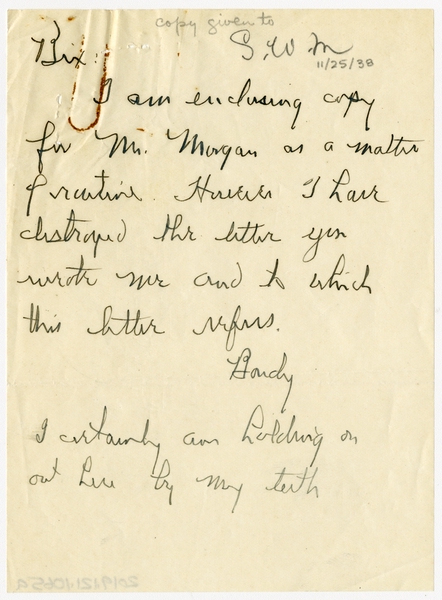 copy given to
S. W. M
11/25/38
Bix:
I am enclosing copy
for Mr. Morgan as a matter
of routine. However I have
destroyed the letter you
wrote me and to which
this letter refers.
Bondy
I certainly am holding on
out here by my teeth
2019.121.1065a